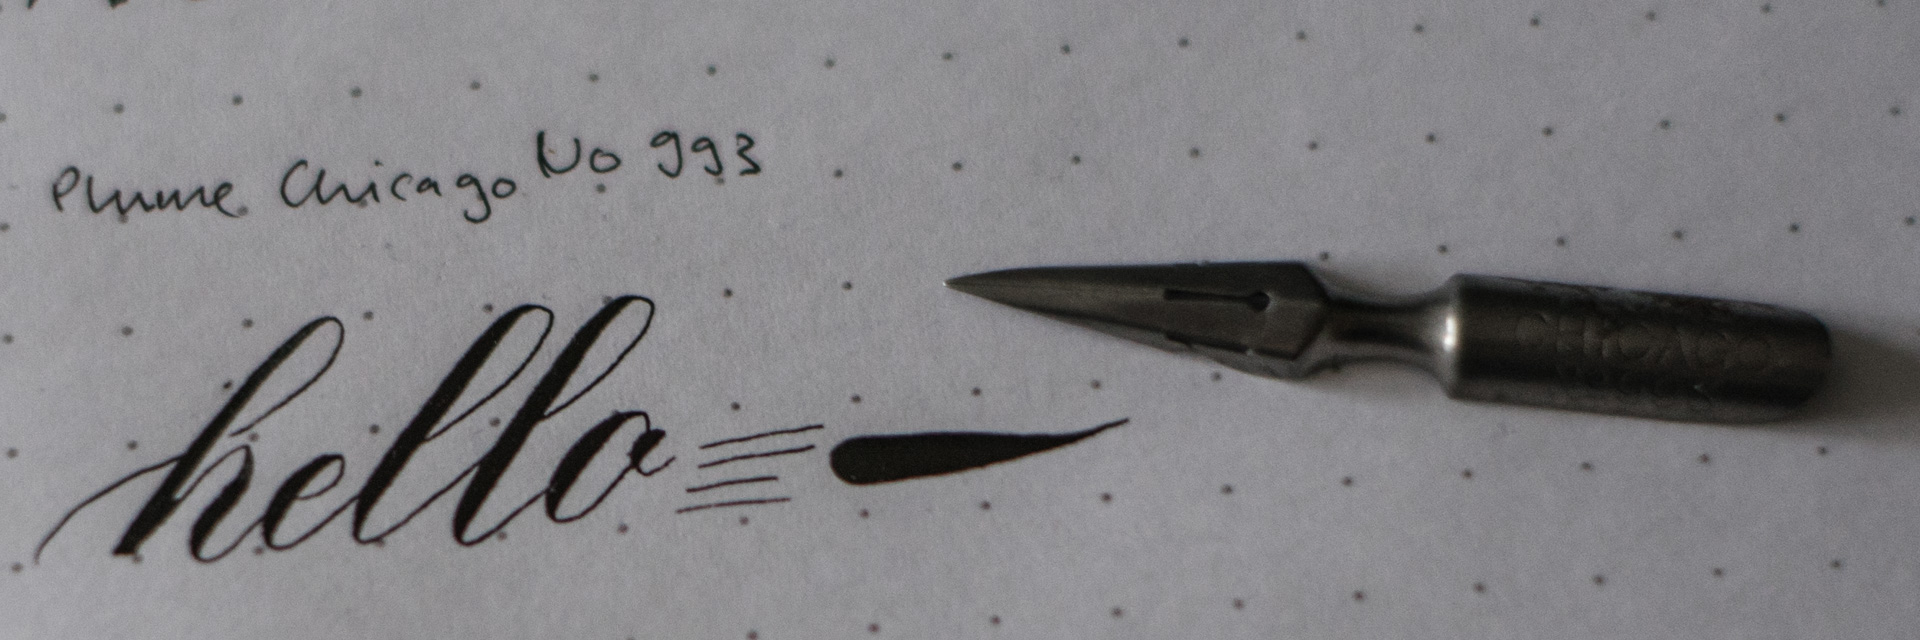 Plume Chicago No 993
hello
CHICAGO